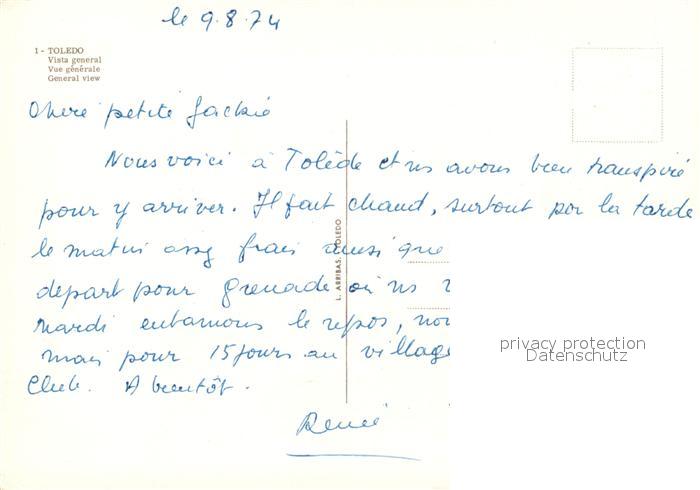 le 9.8.74
1 - TOLEDO
Vista general
Vue générale
General view
Chère petite Jackie
Nous voici à Tolède et ns avons bien transpiré
pour y arriver. Il fait chaud, surtout por la tarde
le matin assez frais ainsi que
L. ARRIBAS. TOLEDO
départ pour grenade où ns
mardi entamons le repos,
mais pour 15 jours au village
privacy protection
Datenschutz
Club. A bientôt.
René